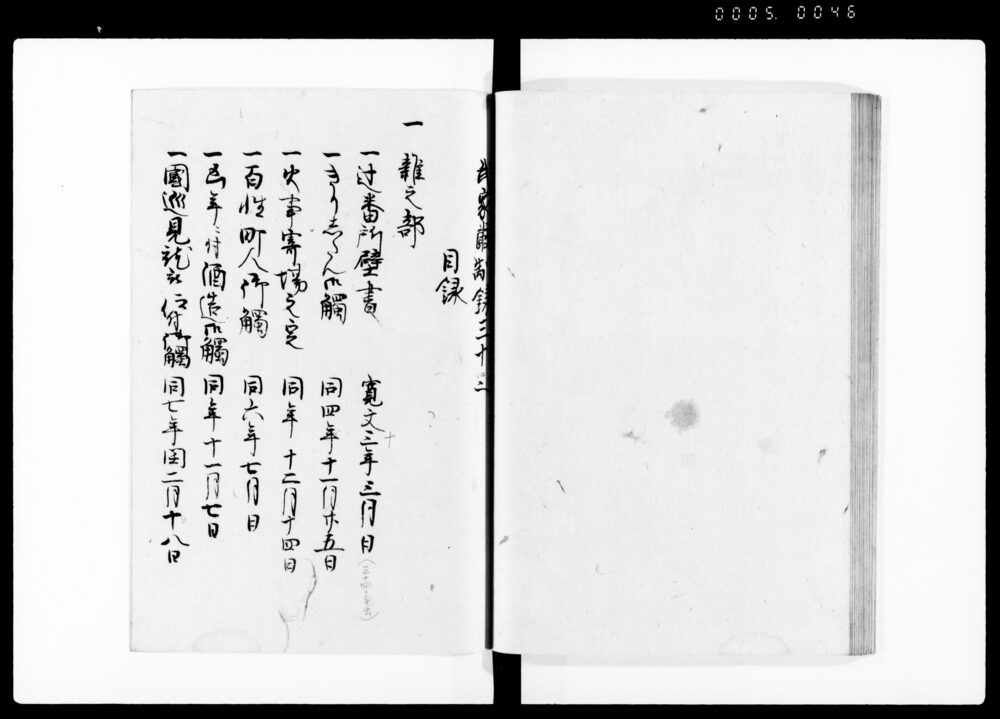 0005. 0046
家蔵 録三十三
目録
一 雑之部
一辻番所壁書 寛文三年三月日 (三十四ニ出)
一きりしたん御觸 同四年十一月廿五日
一火事寄場之定 同年十二月十四日
一百姓町人御觸 同六年七月日
一 年ニ付酒造御觸 同年十一月七日
一國巡見 被仰付御觸 同七年閏二月十八日